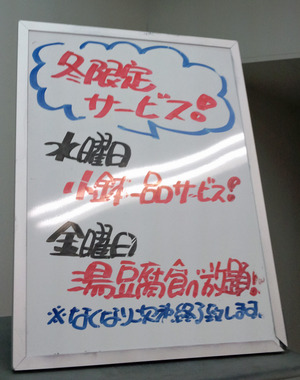 冬限定
サービス!
水曜日
小鉢一品サービス!
金曜日
湯豆腐食べ放題!
※なくなり次第終了致します。